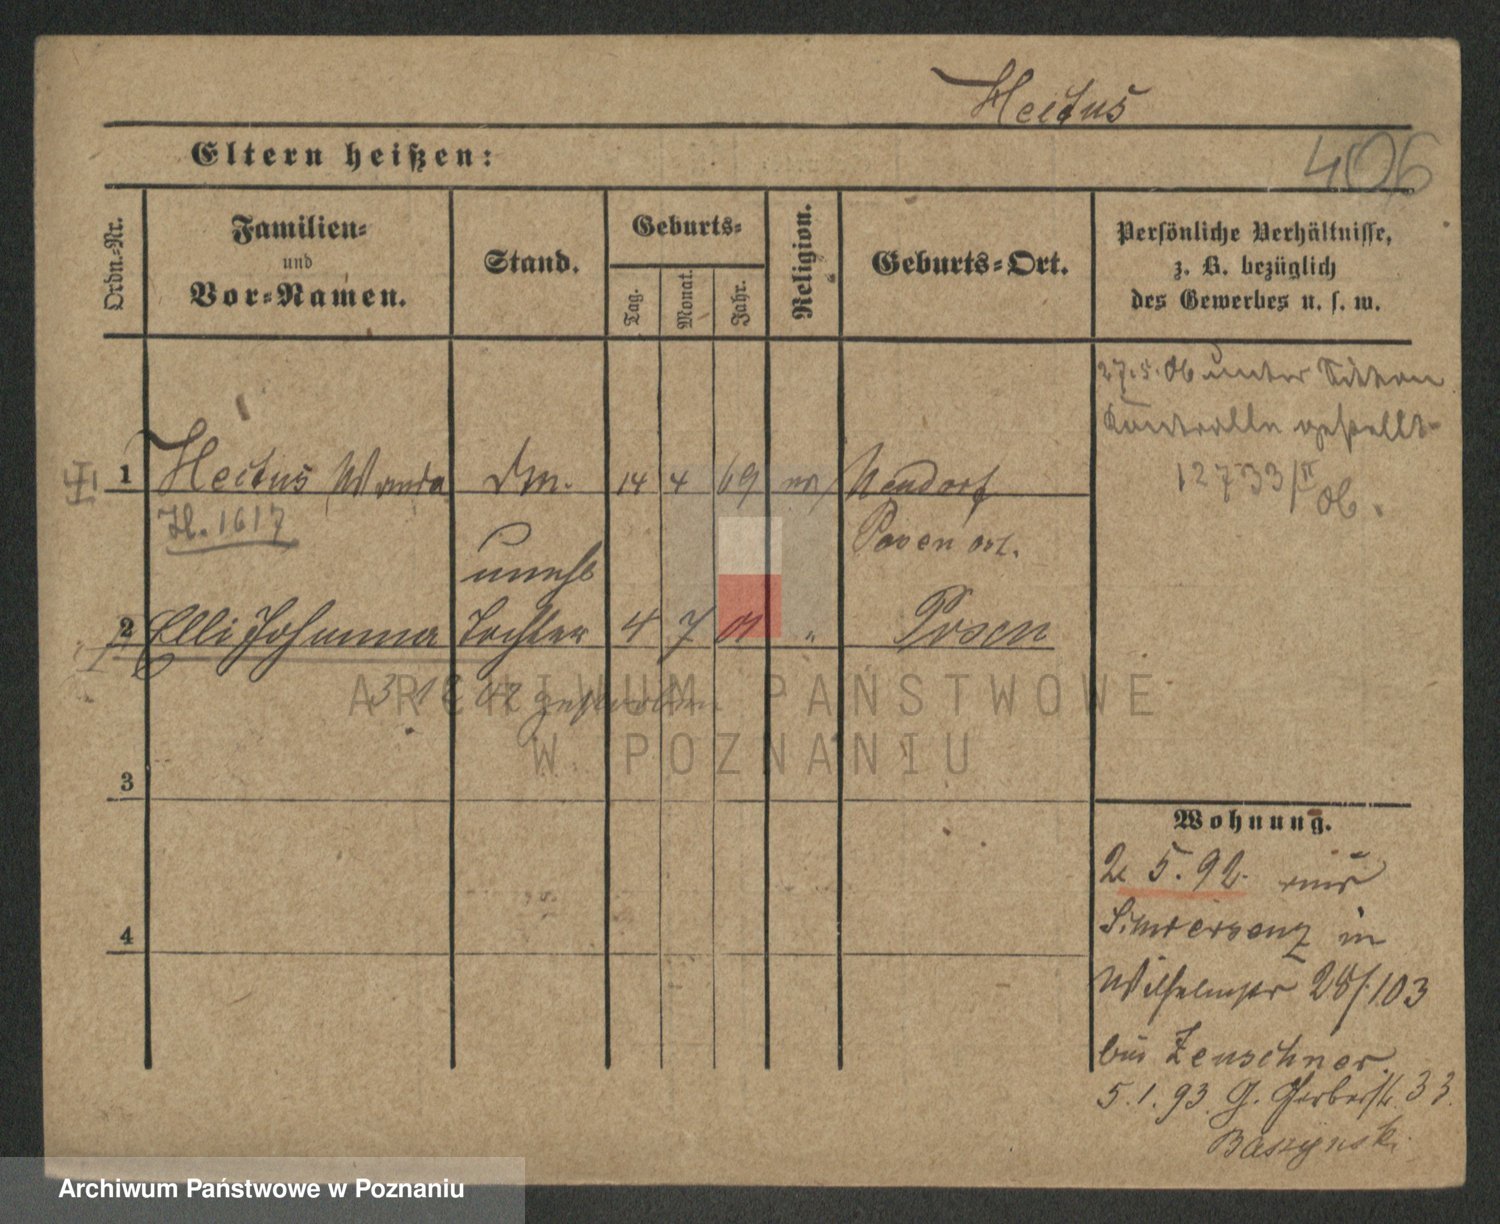 Heitus
406
Eltern heißen:
Ordn.-Nr.
Familien-
und
Vor-Namen.
Stand.
Geburts-
Tag.
Monat.
Jahr.
Religion.
Geburts-Ort.
Persönliche Verhältnisse,
z. B. bezüglich
des Gewerbes u. s. w.
27.5.06 unter Sitten
Kontrolle gestellt
12733/II 06.
1 Heitus Wanda Dm. 14 4 69 Neudorf
1617
Posen ost.
unehl
2 Elli Johanna Tochter 4 7 01 " Posen
gestorben
ARCHIWUM PAŃSTWOWE
W POZNANIU
3
4
Wohnung.
2 5.92. aus
in
Wilhelmstr 28/103
bei Zeuschner.
5.1.93. G. Gerberstr. 33.
Baszynski.
Archiwum Państwowe w Poznaniu